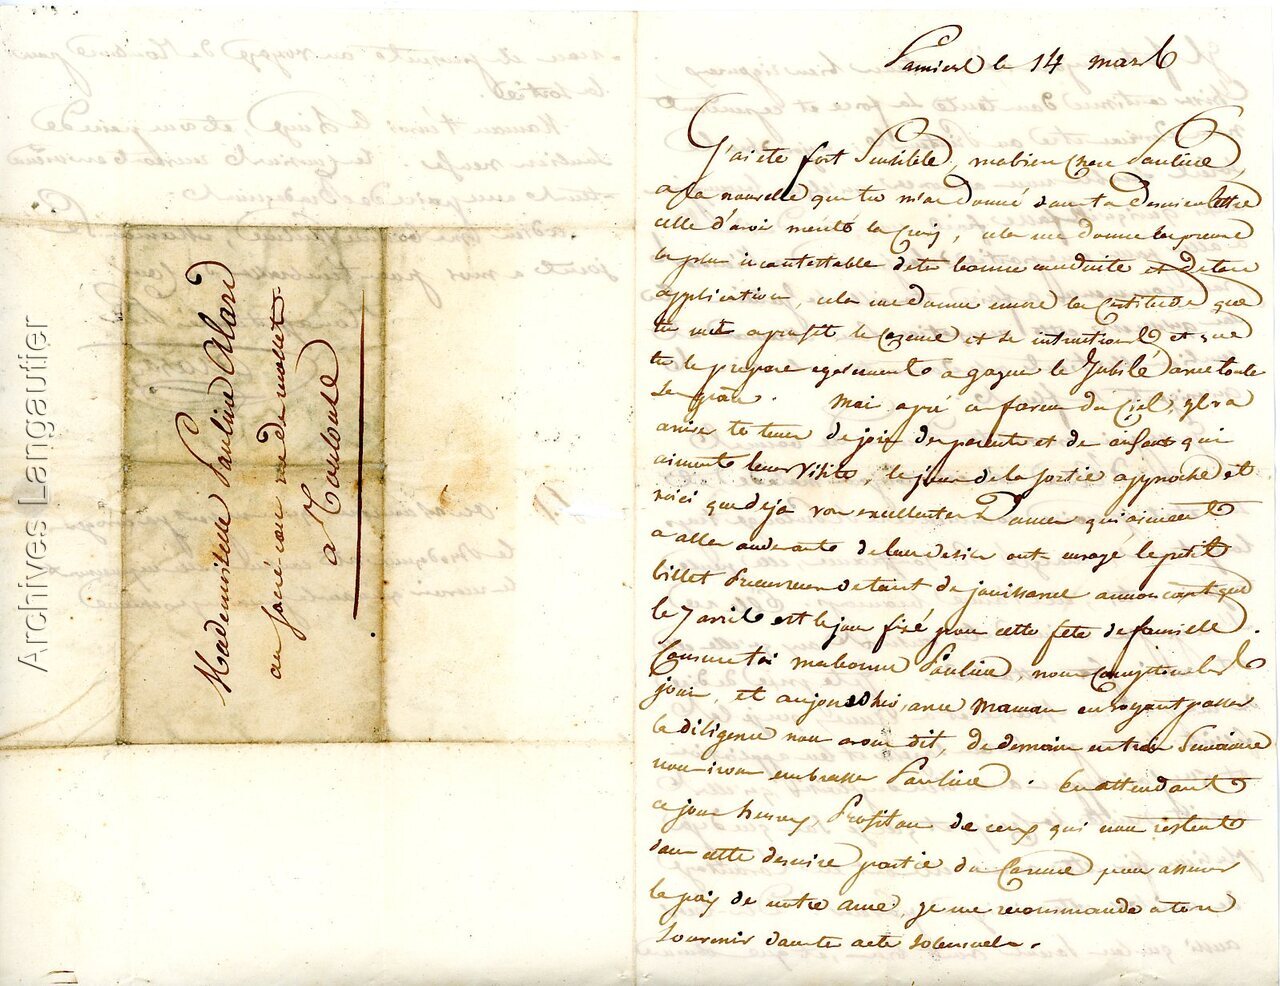 Archives Langautier
Mademoiselle Pauline Alard
au Sacré cœur rue
a Toulouse
Pamiers le 14 mars
J'ai été fort Sensible, ma bien chere Pauline,
a la nouvelle que tu m'as donné dans ta derniere lettre
celle d'avoir merité la Croix, cela me donne la preuve
la plus incontestable de ta bonne conduite et de ton
application, cela me donne encore la Certitude que
tu mets a profit le Careme et les instructions et que
tu te prepare egalement a gagner le Jubilé avec toute
les graces. Mais après ces faveurs du Ciel, il va
arriver le tems de joie des parents et des enfans qui
aiment leur visite, le jour de la sortie approche et
voici que deja vos excellentes Dames qui aiment
a aller audevant de leur desir ont envoyé le petit
billet precurseur de tant de jouissances annonçant que
le 7 avril est le jour fixé pour cette fete de famille.
Comme toi ma bonne Pauline nous comptons les
jours, et aujourdhui, avec Maman en voyant passer
la diligence nous avons dit, de demain en trois Semaines
nous irons embrasser Pauline. En attendant
ce jour heureux, Profitons de ceux qui nous restent
dans cette derniere partie du Careme pour assurer
la paix de notre ame, je me recommande a ton
Souvenir dans tes actes solennels.